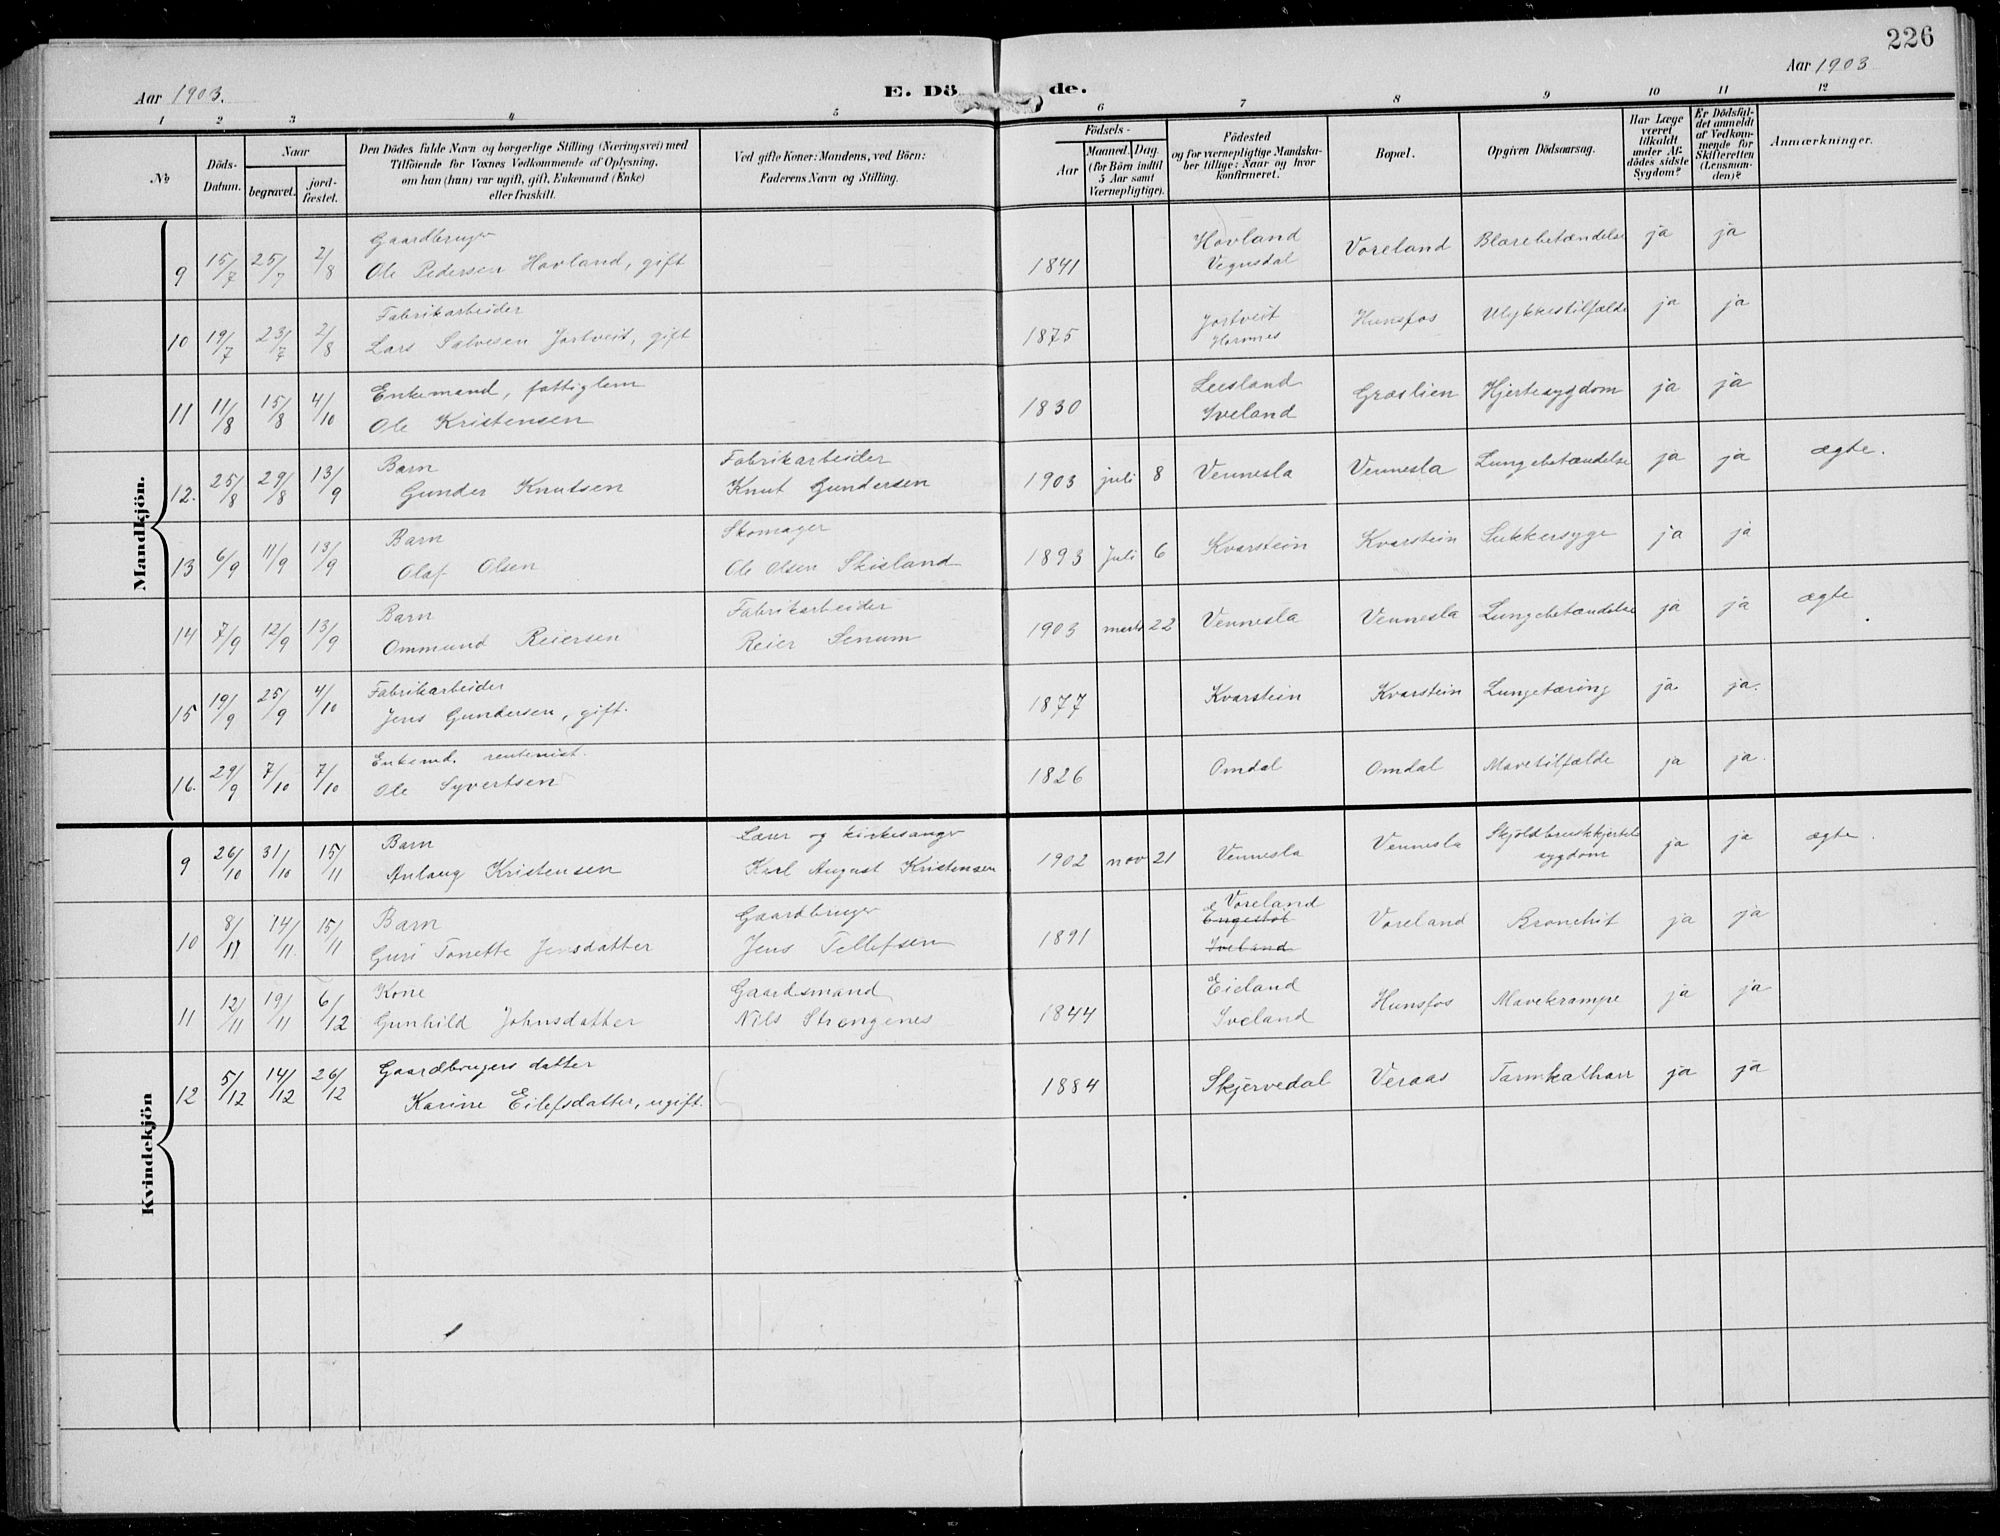 226
Aar 1903.
E. Dö de.
Aar 1903
1 2 3 4 5 6 7 8 9 10 11 12
No
Döds-Datum.
Naar
begravet. jord-fæstet.
Den Dödes fulde Navn og borgerlige Stilling (Næringsvei) med
Tilföiende for Voxnes Vedkommende af Oplysning,
om han (hun) var ugift, gift, Enkemand (Enke)
eller fraskilt.
Ved gifte Koner: Mandens, ved Börn:
Faderens Navn og Stilling.
Födsels-
Aar
Maaned. Dag.
(for Börn indtil
5 Aar samt
Værnepligtige).
Födested
og for værnepligtige Mandska-
ber tillige: Naar og hvor
konfirmeret.
Bopæl.
Opgiven Dödsaarsag.
Har Læge
været
tilkaldt
under Af-
dödes sidste
Sygdom?
Er Dödsfal-
det anmeldt
af Vedkom-
mende for
Skifteretten
(Lensman-
den)?
Anmærkninger.
Mandkjön.
9 15/7 25/7 2/8 Gaardbruger
Ole Pedersen Hovland, gift 1841 Hovland
Vegusdal Voreland Blærebetændelse ja ja
10 19/7 23/7 2/8 Fabrikarbeider
Lars Salvesen Jortveit, gift 1875 Jortveit
Hornnes Hunsfos Ulykkestilfælde ja ja
11 11/8 15/8 4/10 Enkemand, fattiglem
Ole Kristensen 1830 Leesland
Iveland Graslien Hjertesygdom ja ja
12. 25/8 29/8 13/9 Barn
Gunder Knutsen Fabrikarbeider
Knut Gundersen 1903 juli 8 Vennesla Vennesla Lungebetændelse ja ja ægte.
13 6/9 11/9 13/9 Barn
Olaf Olsen Skomager
Ole Olsen Skisland 1893 Juli 6 Kvarstein Kvarstein Sukkersyge ja ja
14 7/9 12/9 13/9 Barn
Ommund Reiersen Fabrikarbeider
Reier Senum 1903 marts 22 Vennesla Vennesla Lungebetændelse ja ja ægte
15 19/9 25/9 4/10 Fabrikarbeider
Jens Gundersen, gift. 1877 Kvarstein Kvarstein Lungetæring ja ja.
16. 29/9 7/10 7/10 Enkemd. rentenist.
Ole Syvertsen 1826 Omdal Omdal Mavetilfælde ja ja.
Kvindekjön
9 26/10 31/10 15/11 Barn
Anlaug Kristensen Lærer og kirkesanger
Karl August Kristensen 1902 nov 21 Vennesla Vennesla Skjoldbruskkjertel
sygdom ja ja ægte
10 8/11 14/11 15/11 Barn
Guri Tonette Jensdatter Gaardbruger
Jens Tellefsen 1891 Voreland
Engestöl
Iveland Voreland Bronchit ja ja
11 12/11 19/11 6/12 Kone
Gunhild Johnsdatter Gaardsmand
Nils Strengenes 1844 Eieland
Iveland Hunsfos Mavekrampe ja ja
12 5/12 14/12 26/12 Gaardbrugers datter
Karine Eilefsdatter, ugift. 1884 Skjervedal Veraas Tarmkatharr ja ja